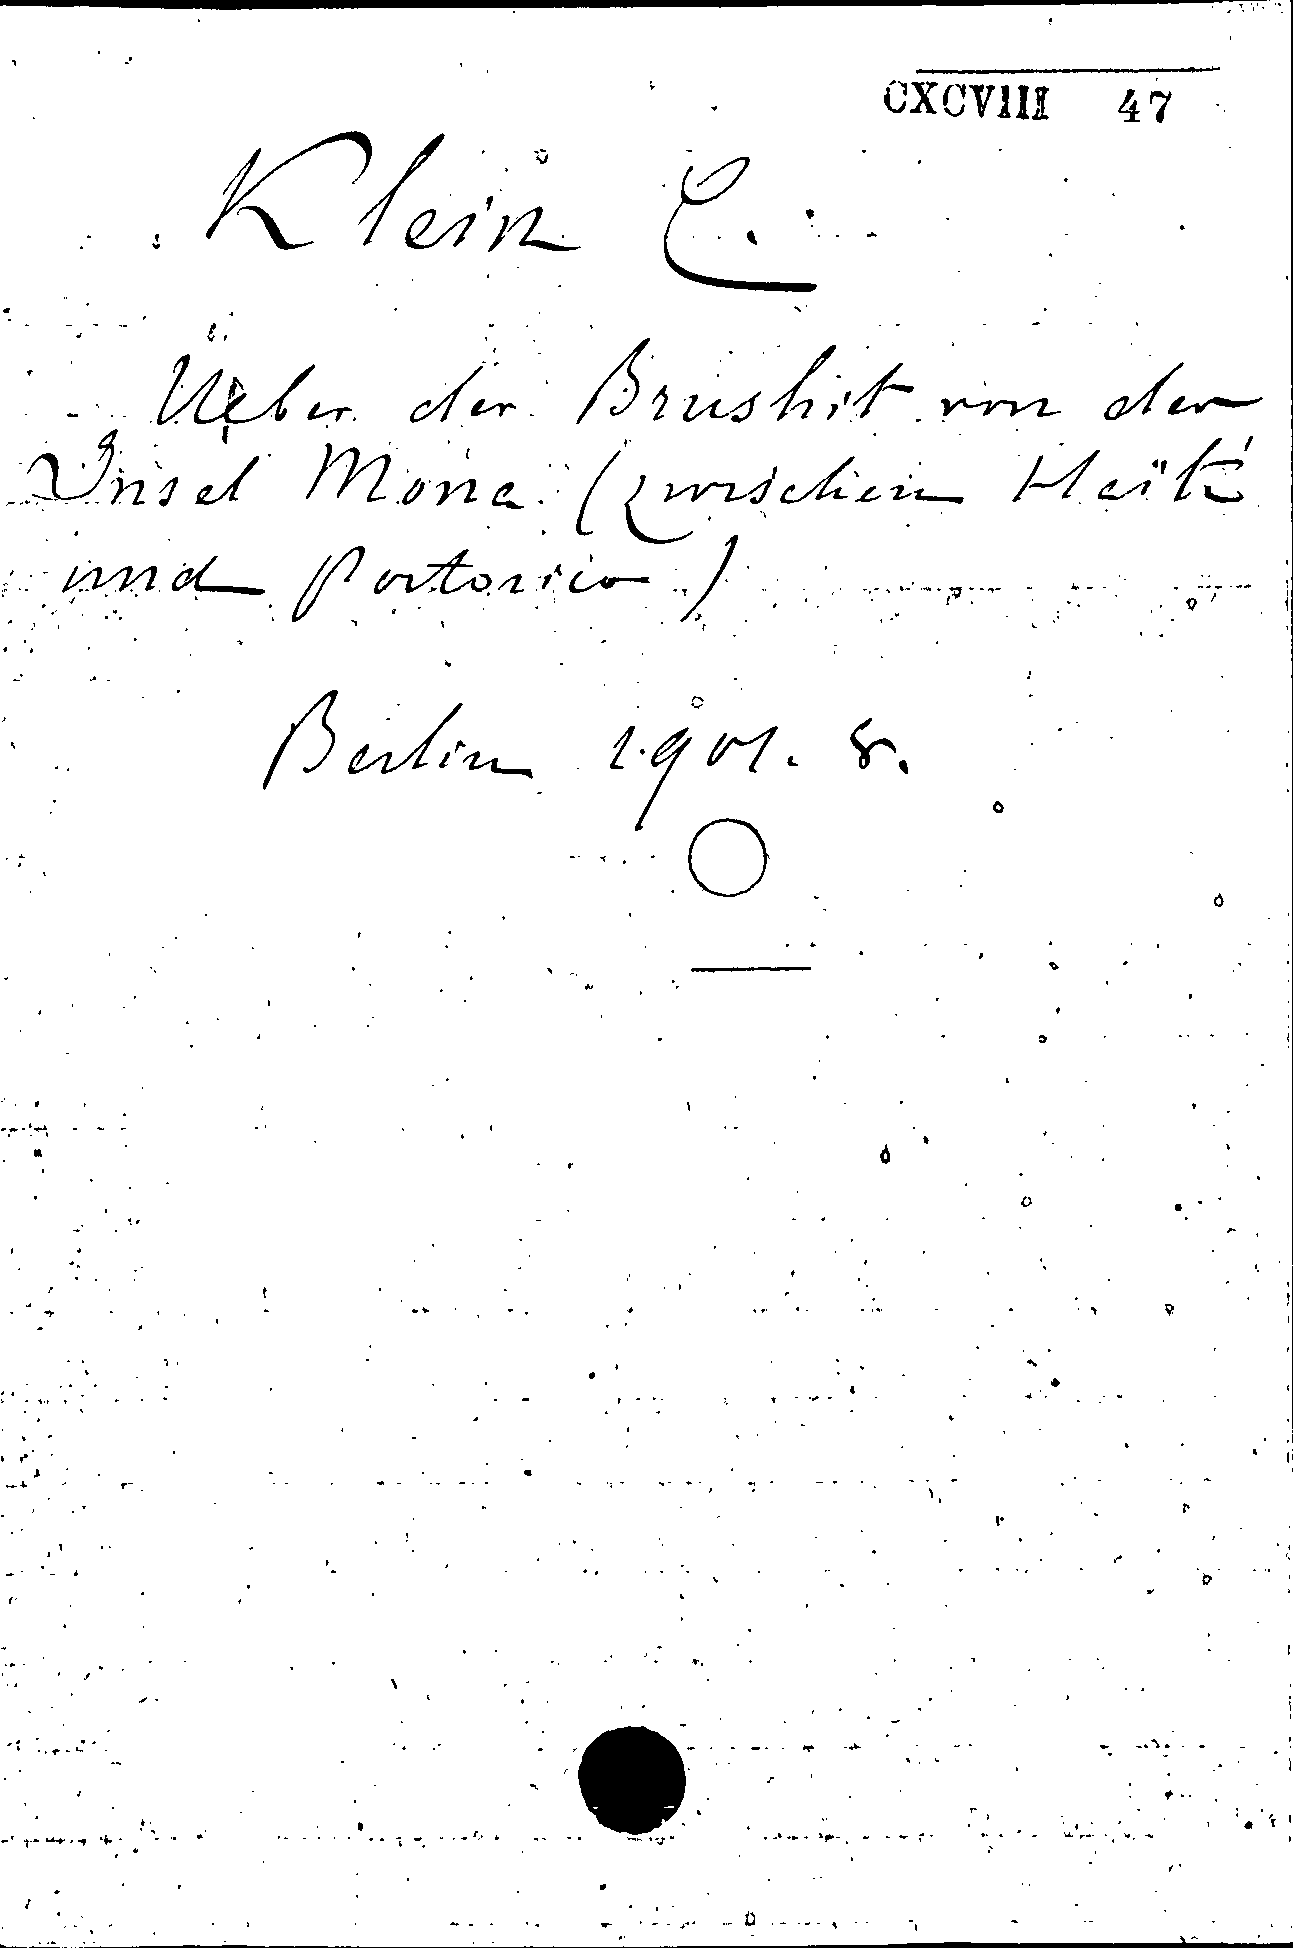 CXCVIII 47
Klein C.
Ueber der Brushit von der
Insel Mona (zwischen Haïti
und Portorico)
Berlin 1901. 8.